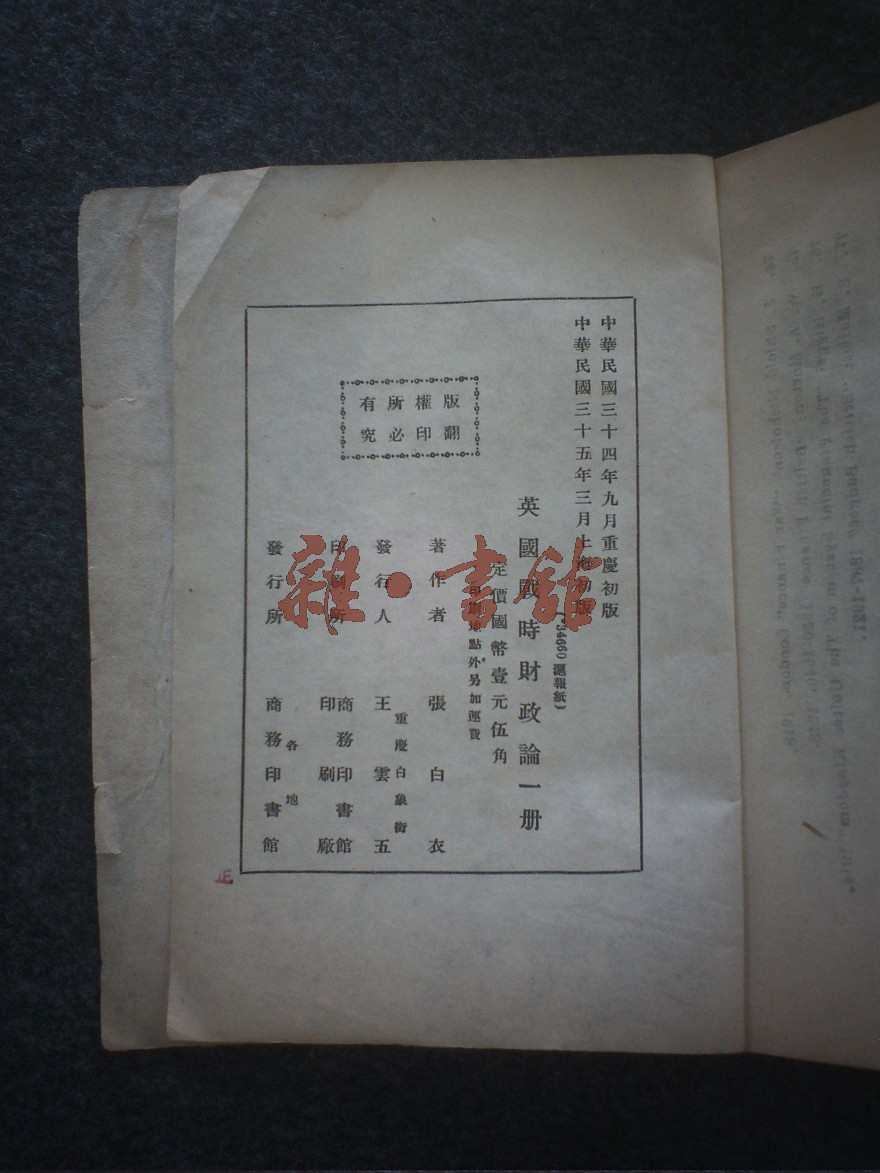 中華民國三十四年九月重慶初版
中華民國三十五年三月上海初版
(34660 滬報紙)
英國戰時財政論一册
定價國幣壹元伍角
印刷地點外另加運費
著作者 張白衣
重慶白象街
發行人 王雲五
印刷所 商務印書館
印刷廠
各地
發行所 商務印書館
版權所有
翻印必究
雜·書館
正